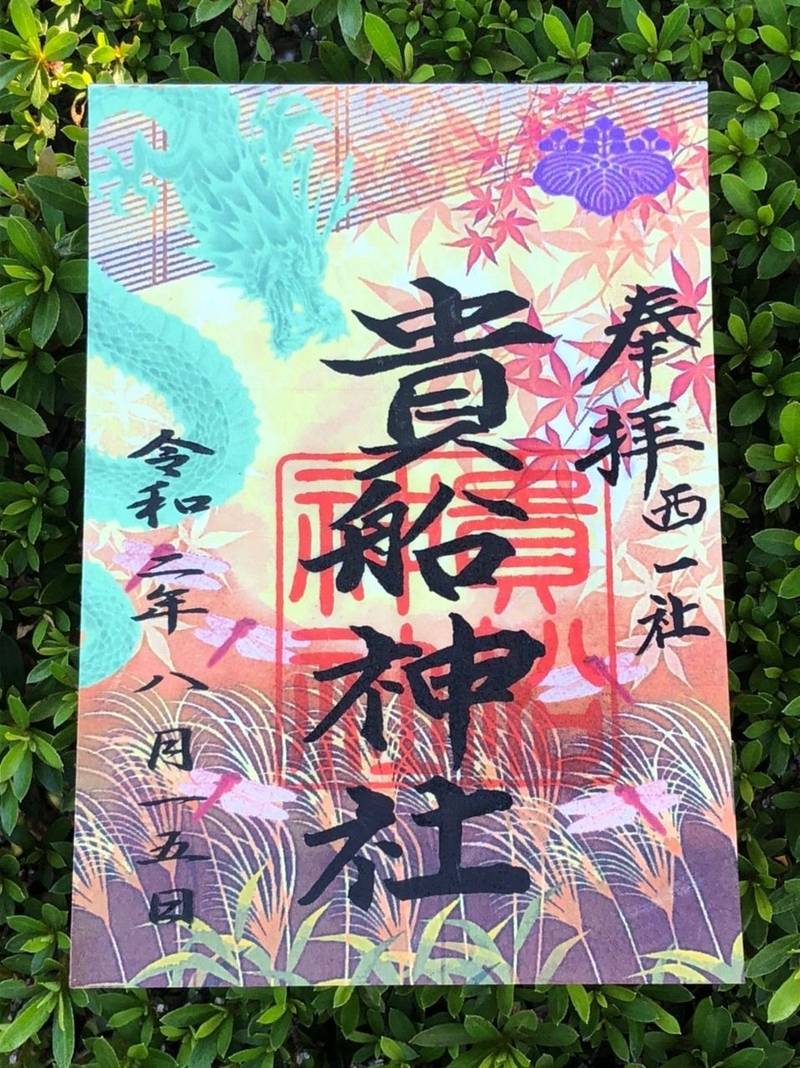 奉拝
西一社
貴船神社
令和二年八月一五日
貴船神社